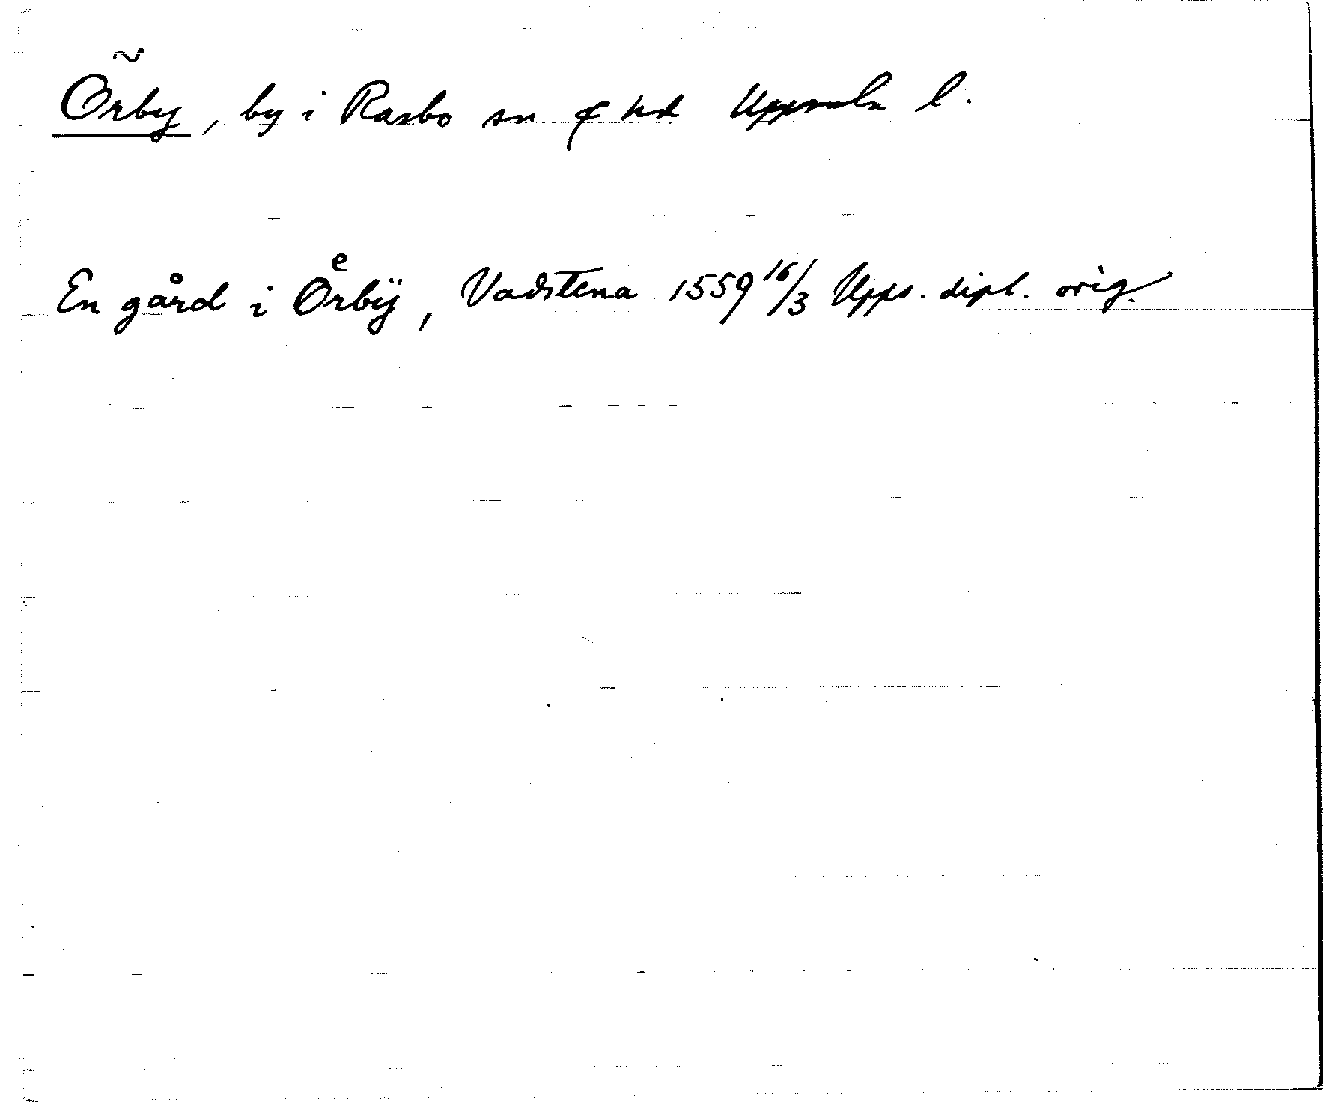 Örby, by i Rasbo sn o hd Uppsala l.
En gård i Oͤrbÿ, Vadstena 1559 16/3 Upps. dipl. orig.